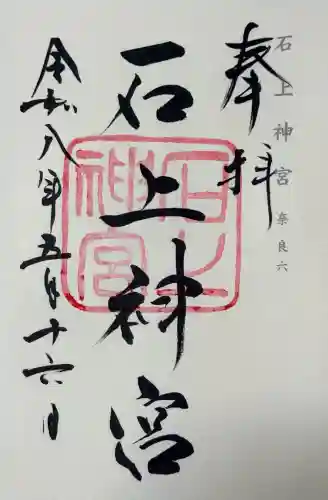 奉拝
石上神宮 奈良六
石上神宮
石上神宮
令和八年五月十六日